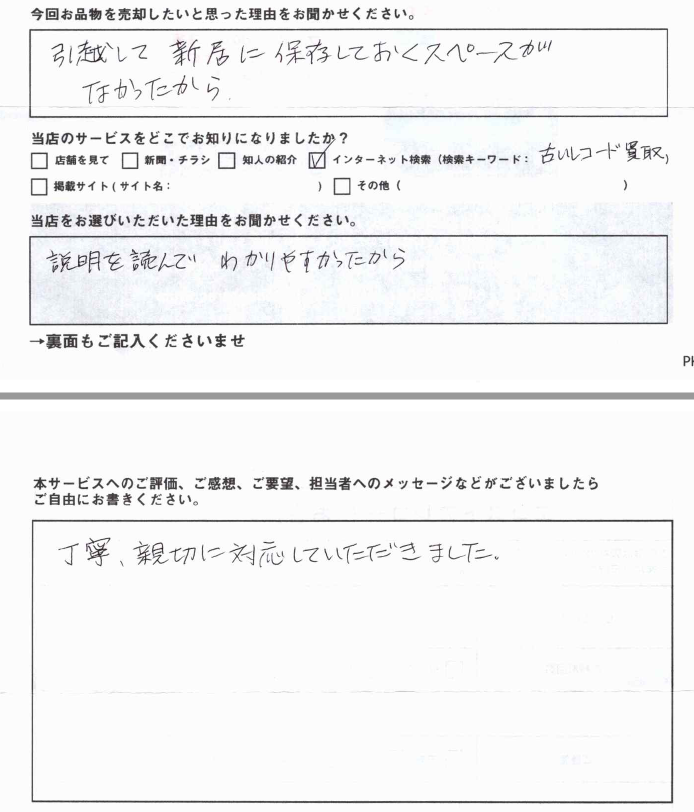 今回お品物を売却したいと思った理由をお聞かせください。
引越して 新居に 保存しておくスペースが
なかったから.
当店のサービスをどこでお知りになりましたか?
店舗を見て 新聞・チラシ 知人の紹介 インターネット検索 (検索キーワード: 古いレコード買取)
掲載サイト(サイト名: ) その他( )
当店をお選びいただいた理由をお聞かせください。
説明を読んで わかりやすかったから
→裏面もご記入くださいませ
本サービスへのご評価、ご感想、ご要望、担当者へのメッセージなどがございましたら
ご自由にお書きください。
丁寧、親切に対応していただきました。